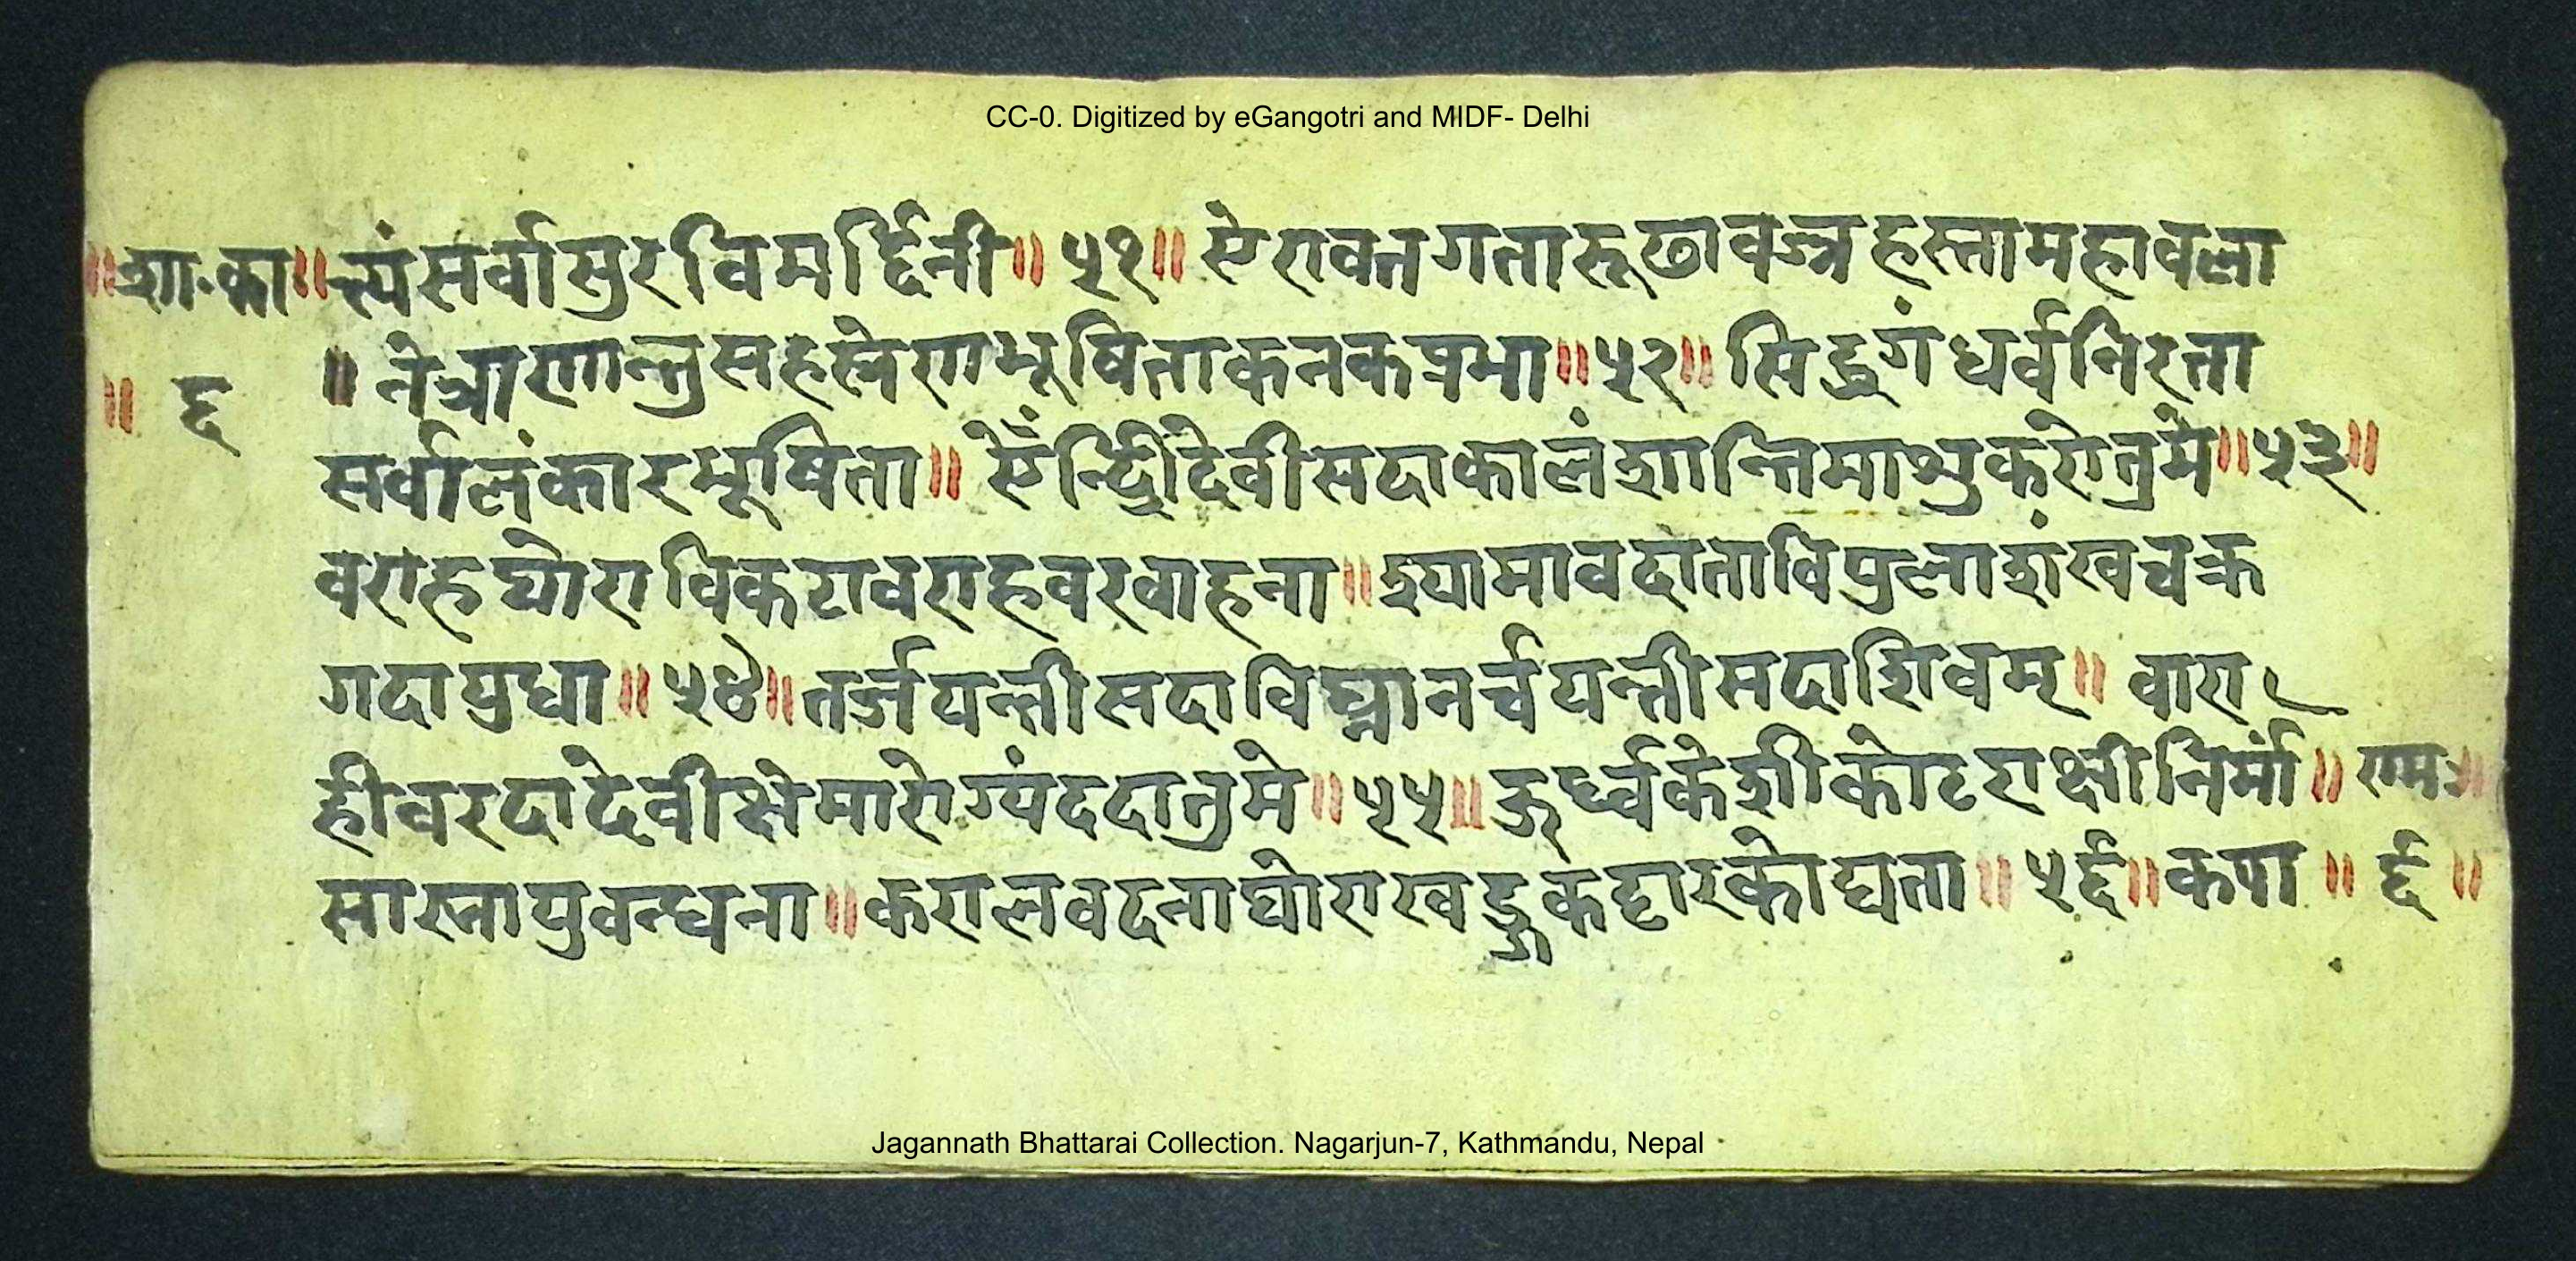 CC-0. Digitized by eGangotri and MIDF- Delhi
॥शा.का॥ त्यं सर्वासुरविमर्द्दिनी॥ ५१॥ ऐरावतगतारूढावज्रहस्तामहावला
॥ ६ ॥ नेत्राणान्तुसहस्रेणभूषिताकनकप्रभा॥ ५२॥ सिद्धगंधर्वनिरता
सर्वालंकारभूषिता॥ ऐंन्द्रिीदेवीसदाकालंशान्तिमाश्रुकरोतुमे॥ ५३॥
वराहघोराविकटावराहवरवाहना॥ श्यामावदाताविपुलाशंखचक्र
गदायुधा॥ ५४॥ तर्जयन्तीसदाविघ्नानर्चयन्तीसदाशिवम्॥ वारा
हीवरदादेवीक्षेमारोग्यंददातुमे॥ ५५॥ ऊर्ध्वकेशीकोटराक्षीनिर्मां॥ रामः॥
सास्नायुवन्धना॥ करालवदनाघोराखड्गकट्टारकोद्यता॥ ५६॥ कपा ॥ ६ ॥
Jagannath Bhattarai Collection. Nagarjun-7, Kathmandu, Nepal